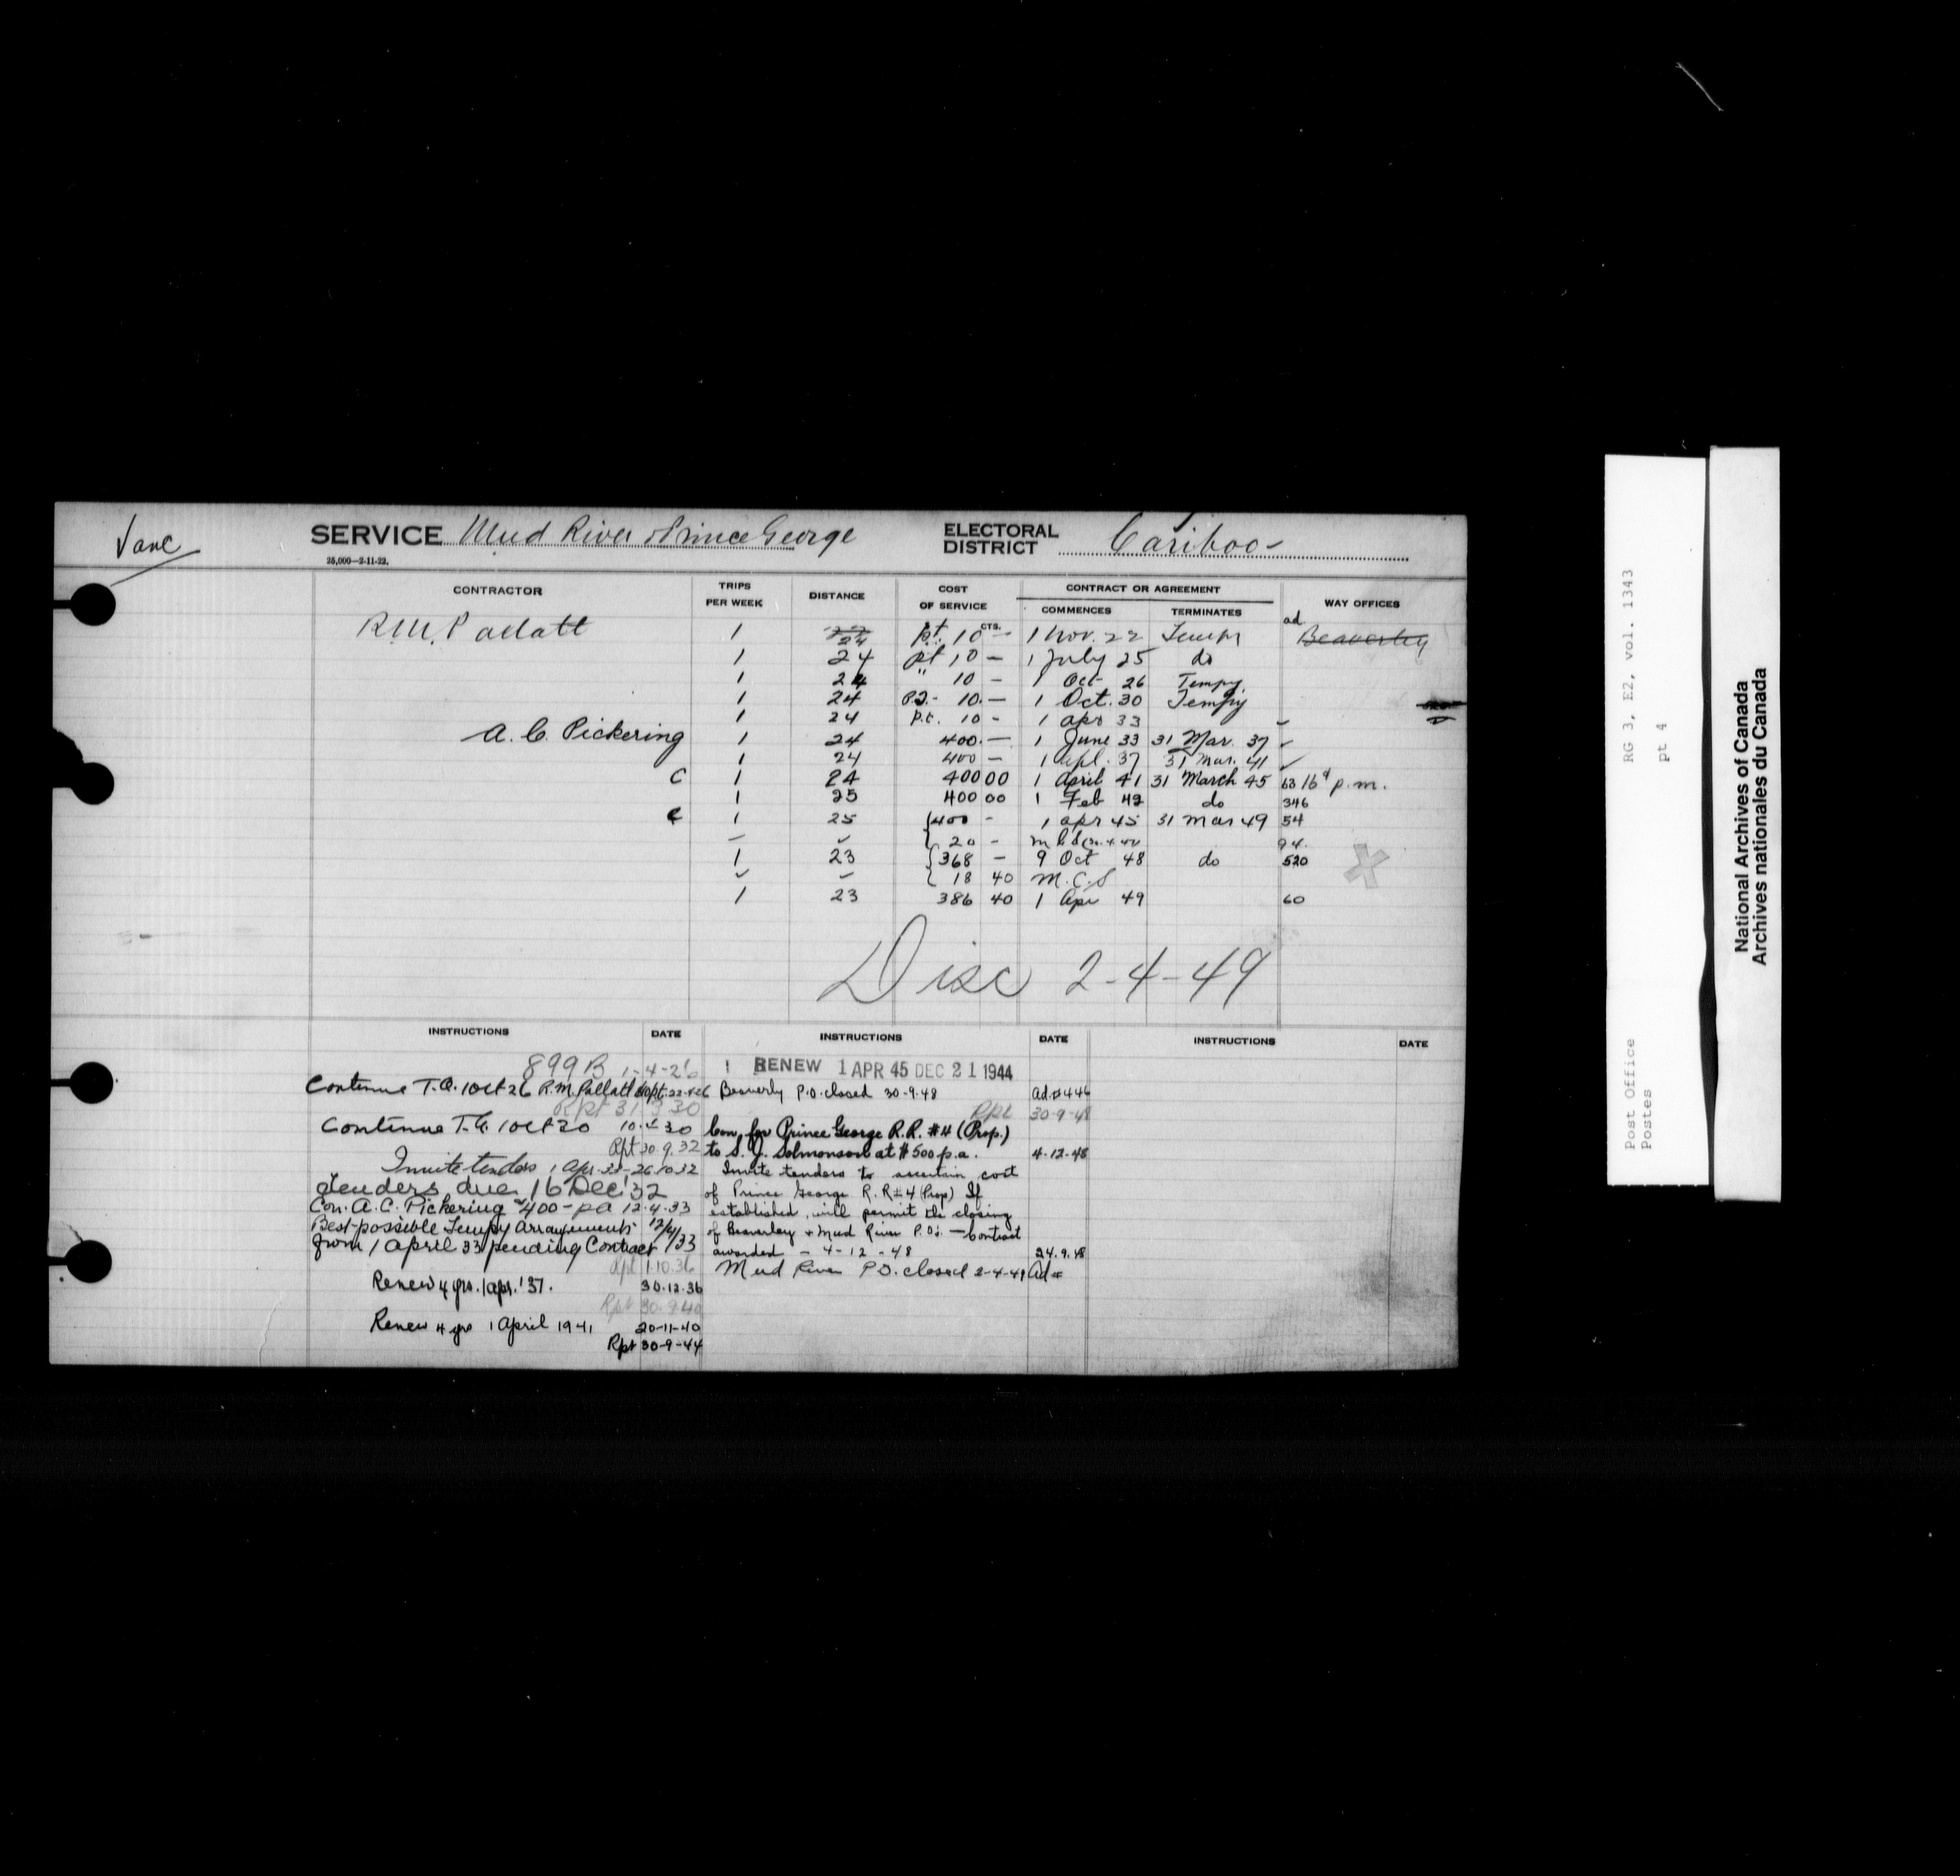 Vanc
SERVICE Mud River & Prince George ELECTORAL DISTRICT Cariboo
25,000—2-11-22.
CONTRACTOR TRIPS PER WEEK DISTANCE COST OF SERVICE CONTRACT OR AGREEMENT WAY OFFICES
COMMENCES TERMINATES
CTS. ad
R.M. Pallatt 1 24 pt. 10 — 1 Nov. 22 Tempy Beaverley
1 24 pt 10 — 1 July 25 do
1 24 " 10 — 1 Oct 26 Tempy.
1 24 10.— 1 Oct. 30 Tempy
1 24 p.t. 10 - 1 apr 33
A. C. Pickering 1 24 400.— 1 June 33 31 Mar. 37 ✓
1 24 400 — 1 Apl. 37 31 Mar. 41 ✓
C 1 24 400 00 1 April 41 31 March 45 63 p.m.
1 25 400 00 1 Feb 42 do 346
C 1 25 400 - 1 apr 45 31 Mar 49 54
— ✓ 20 - 94.
1 23 368 — 9 Oct 48 do 520
✓ ✓ 18 40 M.C.S
1 23 386 40 1 Apr 49 60
Disc 2-4-49
INSTRUCTIONS DATE INSTRUCTIONS DATE INSTRUCTIONS DATE
899B 1-4-26
Continue T.A. 1 Oct 26 R.M. Pallatt
Rpt 31 3 30
Continue T.A. 1 Oct 30 10-4-30
Rpt 30.9.32
Invite tenders 1 Apr. 33 - 26 10 32
Tenders due 16 Dec '32
Con. A.C. Pickering $400 - pa 12.4.33
Best possible Tempy Arrangements 12/4/33
from 1 April 33 pending Contract
Rpt 1.10.36
Renew 4 yrs. 1 apr. '37. 30.12.36
Rpt 30.9.40
Renew 4 yrs 1 April 1941 20-11-40
Rpt 30-9-44
RENEW 1 APR 45 DEC 21 1944
Beaverly P.O. closed 30-9-48 Ad.#446
Rpt 30-9-48
Con. for Prince George R.R. #4 (Prop.)
to S. J. Solmonson at $500 p.a. 4-12-48
Invite tenders to ascertain cost
of Prince George R.R #4 (Prop) If
established, will permit the closing
of Beaverley & Mud River P.Os. — Contract
awarded - 4-12-48 24.9.48
Mud River P.O. closed 2-4-49 Ad#
RG 3, E2, vol. 1343
pt 4
Post Office
Postes
National Archives of Canada
Archives nationales du Canada